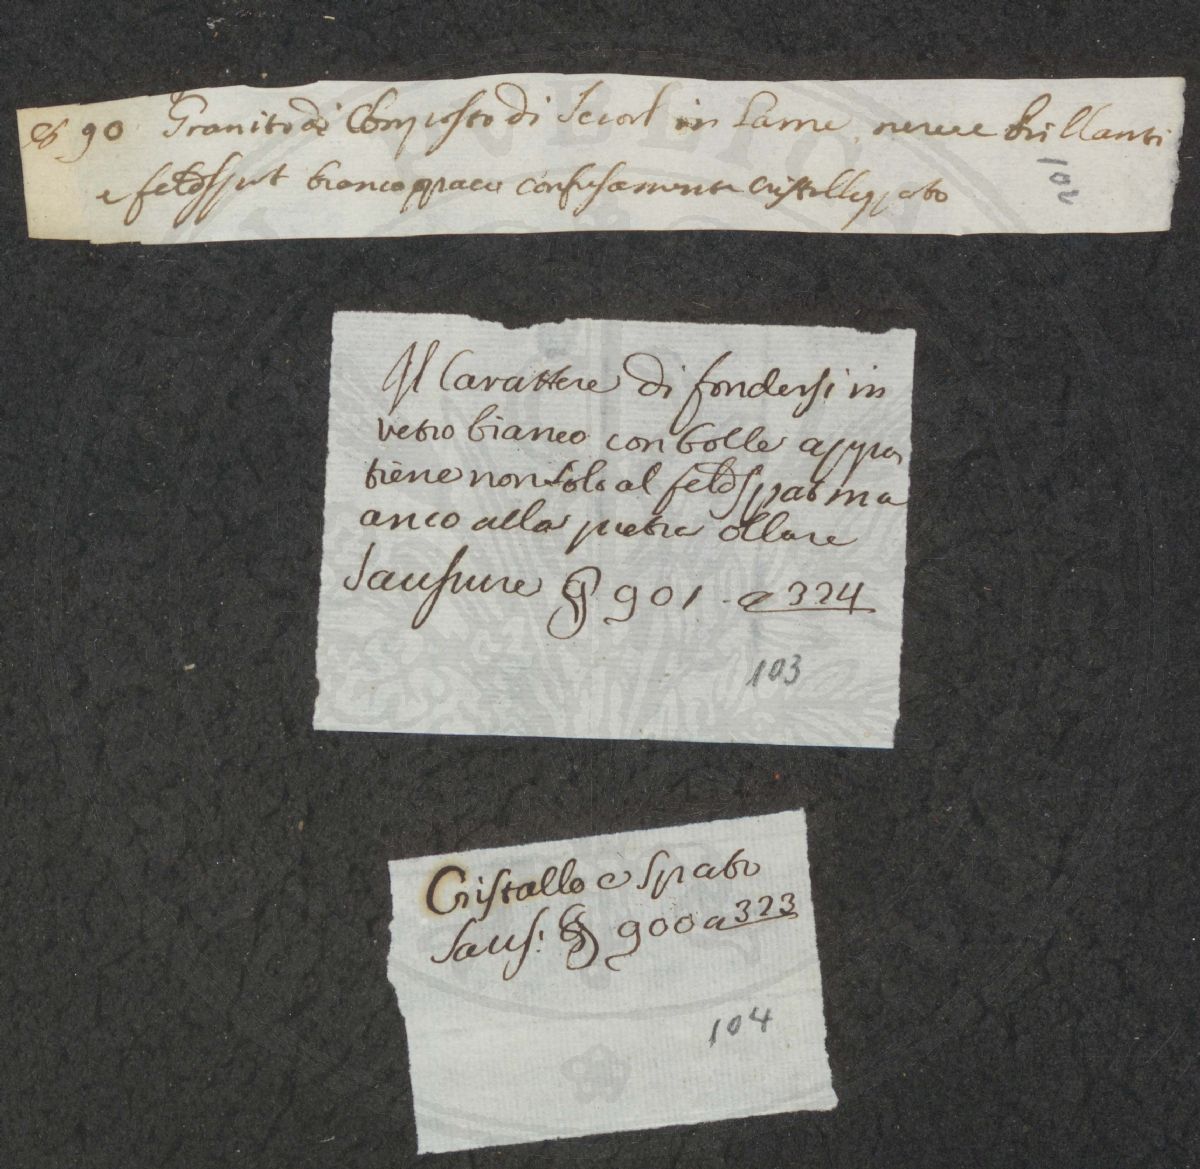 & 90 Granito di Composto di Scorl in Lame nere brillanti
e feldspat bianco opaco confusamente cristallizzato
102
Il Carattere di fondersi in
vetro bianco con bolle appar
tiene non solo al feldspat ma
anco alla pietra ollare
Saussure § 901. a 324
103
Cristallo e Spato
Saus. § 900 a 323
104